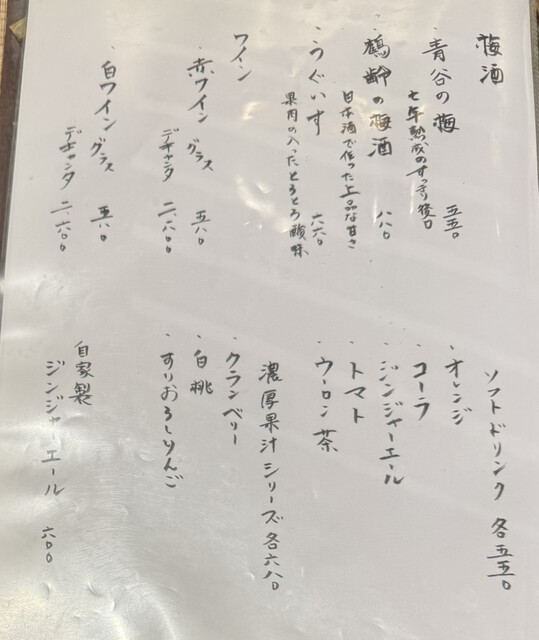 梅酒
・青谷の梅 五五〇
七年熟成のすっきり後口
・鶴齢の梅酒 八八〇
日本酒で作った上品な甘さ
・うぐいす 六六〇
果肉の入ったとろとろ酸味
ワイン
・赤ワイン グラス 五八〇
デキャンタ 二、八〇〇
・白ワイン グラス 五八〇
デキャンタ 二、六〇〇
ソフトドリンク 各五五〇
・オレンジ
・コーラ
・ジンジャーエール
・トマト
・ウーロン茶
濃厚果汁シリーズ 各六八〇
・クランベリー
・白桃
・すりおろしりんご
自家製
ジンジャーエール 六〇〇